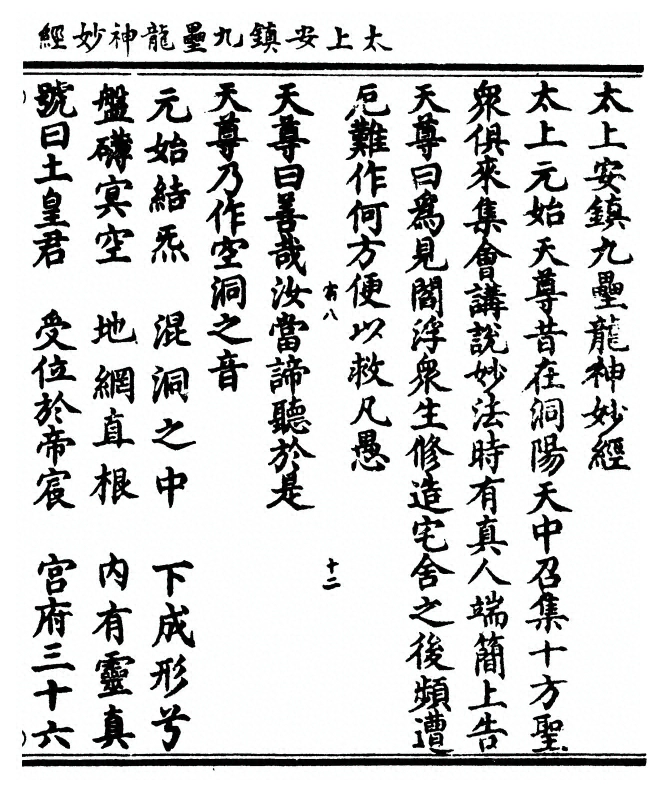 太上安鎮九壘龍神妙經
太上安鎮九壘龍神妙經
太上元始天尊昔在洞陽天中召集十方聖
衆俱來集會講說妙法時有真人端簡上告
天尊曰爲見閻浮衆生修造宅舍之後頻遭
厄難作何方便以救凡愚
有八 十二
天尊曰善哉汝當諦聽於是
天尊乃作空洞之音
元始結炁 混洞之中 下成形兮
盤礴冥空 地網直根 內有靈真
號曰土皇君 受位於帝宸 宮府三十六